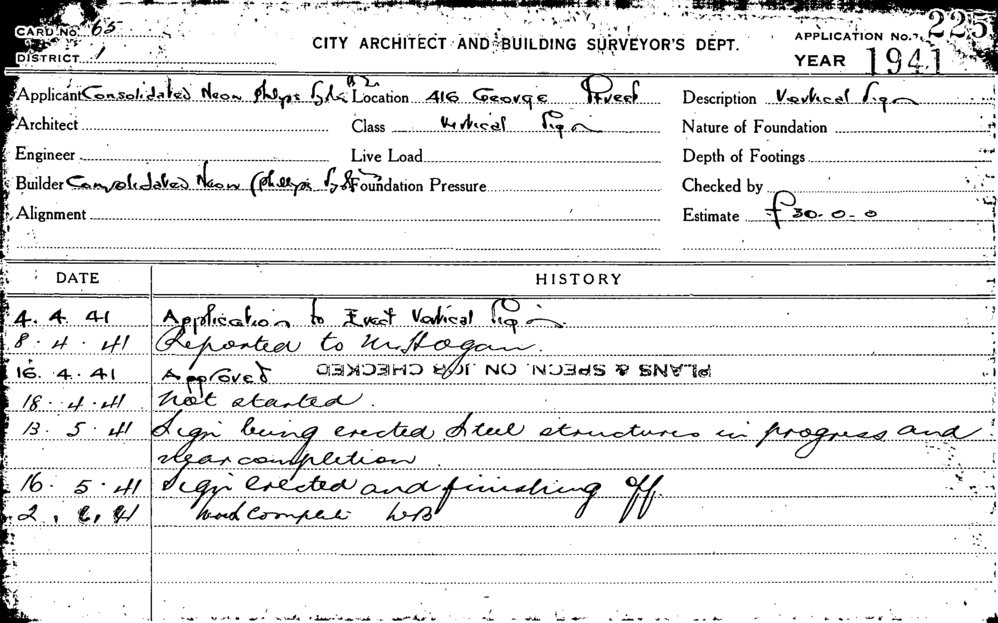 CARD No. 65
CITY ARCHITECT AND BUILDING SURVEYOR'S DEPT.
APPLICATION No. 225
DISTRICT 1
YEAR 1941
Applicant Consolidated Neon Location 416 George Street Description Vertical Sign
Architect Class Vertical Sign Nature of Foundation
Engineer Live Load Depth of Footings
Builder Consolidated Neon Foundation Pressure Checked by
Alignment Estimate £30-0-0
DATE HISTORY
4. 4. 41 Application to Erect Vertical Sign
8. 4. 41 Reported to Mr Hogan.
16. 4. 41 Approved PLANS & SPECN. ON JOB CHECKED
18. 4. 41 Not started.
13. 5. 41 Sign being erected Steel structures in progress and
near completion
16. 5. 41 Sign erected and finishing off
2. 6. 41 Work complete